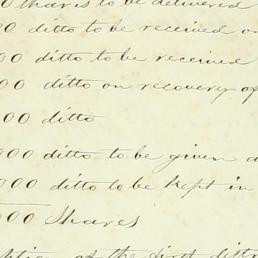 0 Shares to be delivered
00 ditto to be received on
00 ditto to be received
00 ditto on recovery of
000 ditto
000 ditto to be given a
000 ditto to be kept in
000 Shares
of the first